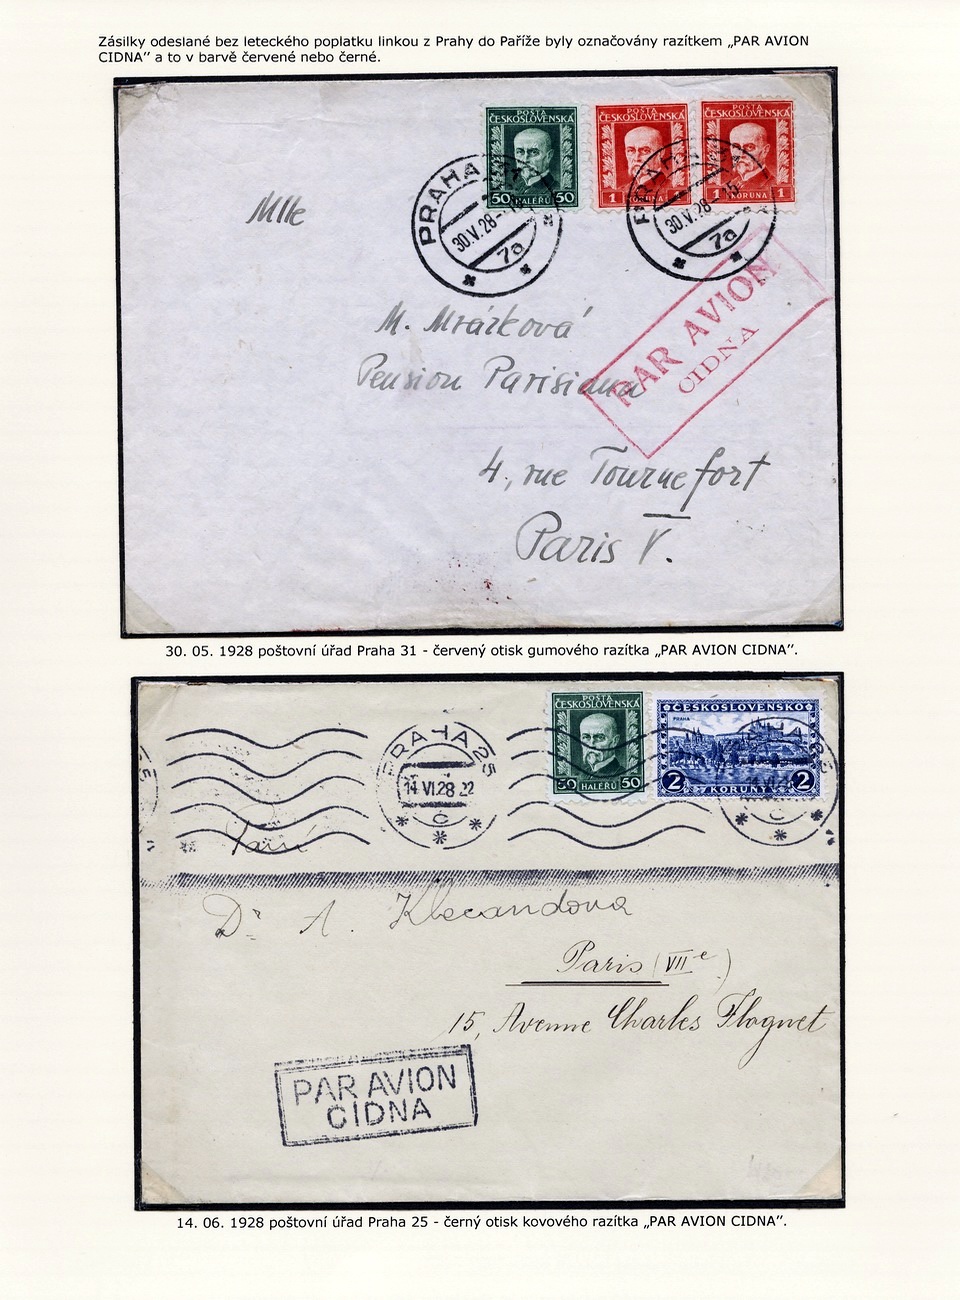 Zásilky odeslané bez leteckého poplatku linkou z Prahy do Paříže byly označovány razítkem „PAR AVION
CIDNA” a to v barvě červené nebo černé.
POŠTA
ČESKOSLOVENSKÁ
50 HALÉŘŮ 50
POŠTA
ČESKOSLOVENSKÁ
1 KORUNA 1
POŠTA
ČESKOSLOVENSKÁ
1 KORUNA 1
PRAHA
30.V.28
7a
PRAHA
30.V.28
7a
Mlle
PAR AVION
CIDNA
M. Mrázková
Pension Parisiana
4, rue Tournefort
Paris V.
30. 05. 1928 poštovní úřad Praha 31 - červený otisk gumového razítka „PAR AVION CIDNA”.
POŠTA
ČESKOSLOVENSKÁ
50 HALÉŘŮ 50
ČESKOSLOVENSKO
PRAHA
2 KORUNY 2
PRAHA 25
14.VI.28 22
C
Dr A. Klecandova
Paris (VIIe)
15, Avenue Charles Floquet
PAR AVION
CIDNA
14. 06. 1928 poštovní úřad Praha 25 - černý otisk kovového razítka „PAR AVION CIDNA”.